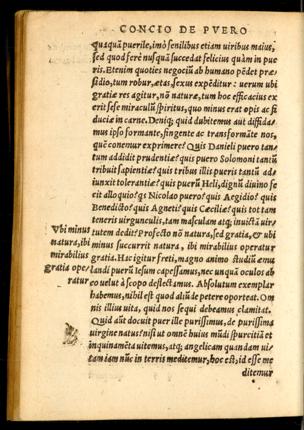 CONCIO DE PVERO
quaquā puerile, imò senilibus etiam uiribus maius,
sed quod ferè nusquā succedat felicius quàm in pue
ris. Etenim quoties negociū ab humano pēdet præ
sidio, tum robur, ætas, sexus expēditur: uerum ubi
gratiæ res agitur, nō natura, tum hoc efficacius ex
erit sese miraculū spiritus, quo minus erat opis ac fi
duciæ in carne. Deniq; quid dubitemus aut diffida=
mus ipso formante, fingente ac transformāte nos,
quē conemur exprimere? Quis Danieli puero tan=
tum addidit prudentiæ? quis puero Solomoni tantū
tribuit sapientiæ? quis tribus illis pueris tantū ad=
iunxit tolerantiæ? quis puerū Heli, dignū diuino fe
cit alloquio? qs Nicolao puero? quis Aegidio? quis
Benedicto? quis Agneti? quis Cæciliæ? quis tot tam
teneris uirgunculis, tam masculam atq; inuictā uir=
tutem dedit? Profecto nō natura, sed gratia, & ubi
minus succurrit natura, ibi mirabilius operatur
gratia. Hac igitur freti, magno animo studiū æmu
landi puerū Iesum capessamus, nec unquā oculos ab
eo uelut à scopo deflectamus. Absolutum exemplar
habemus, nihil est quod aliūde petere oporteat. Om
nis illius uita, quid nos sequi debeamus clamitat.
Quid aūt docuit puer ille purissimus, de purissima
uirgine natus? nisi ut omnē huius mūdi spurcitiā et
inquinamēta uitemus, atq; angelicam quandam ui=
tam iam nūc in terris meditemur, hoc est, id esse me
ditemur
Vbi minus
natura, ibi
mirabilius
gratia ope=
ratur